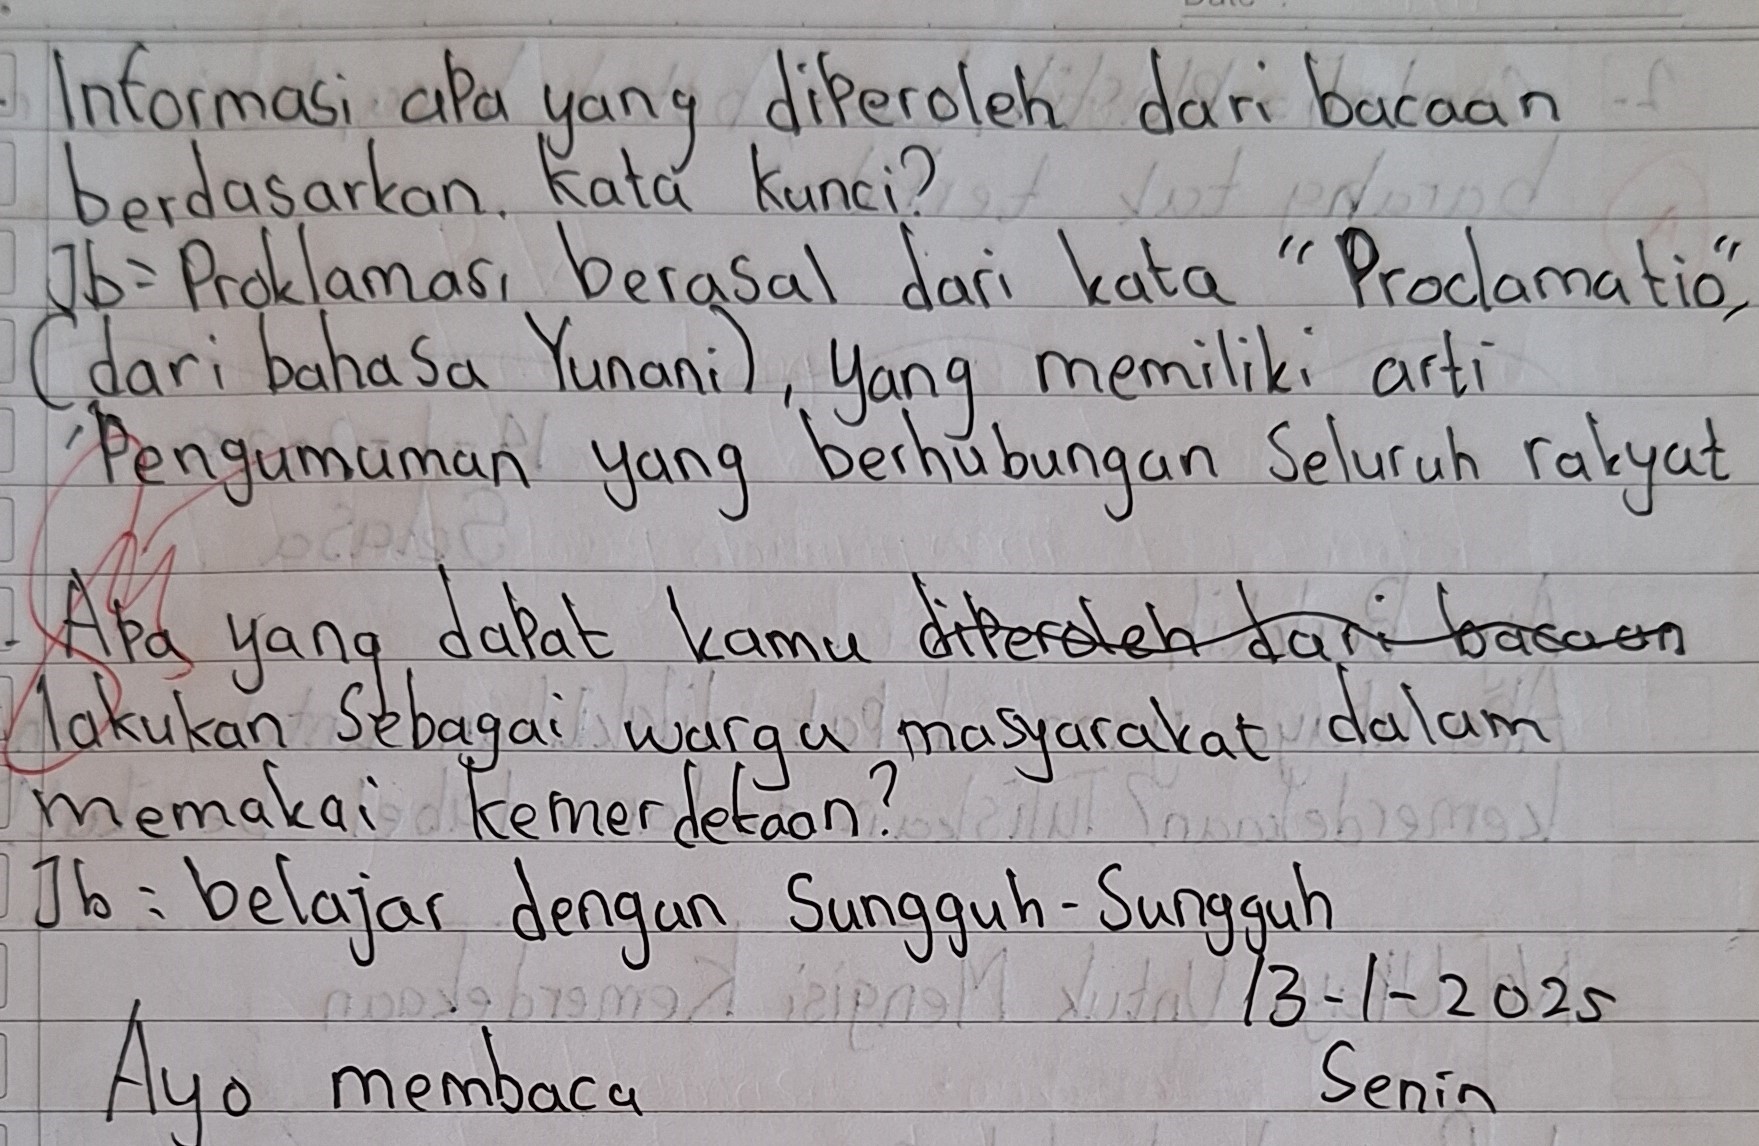 Informasi apa yang diperoleh dari bacaan
berdasarkan. kata kunci?
Jb= Proklamasi berasal dari kata "Proclamatio",
(dari bahasa Yunani), yang memiliki arti
'Pengumuman yang berhubungan Seluruh rakyat
Apa yang dapat kamu diperoleh dari bacaan
lakukan Sebagai warga masyarakat dalam
memakai kemerdekaan?
Jb: belajar dengan Sungguh-Sungguh
13-1-2025
Ayo membaca Senin